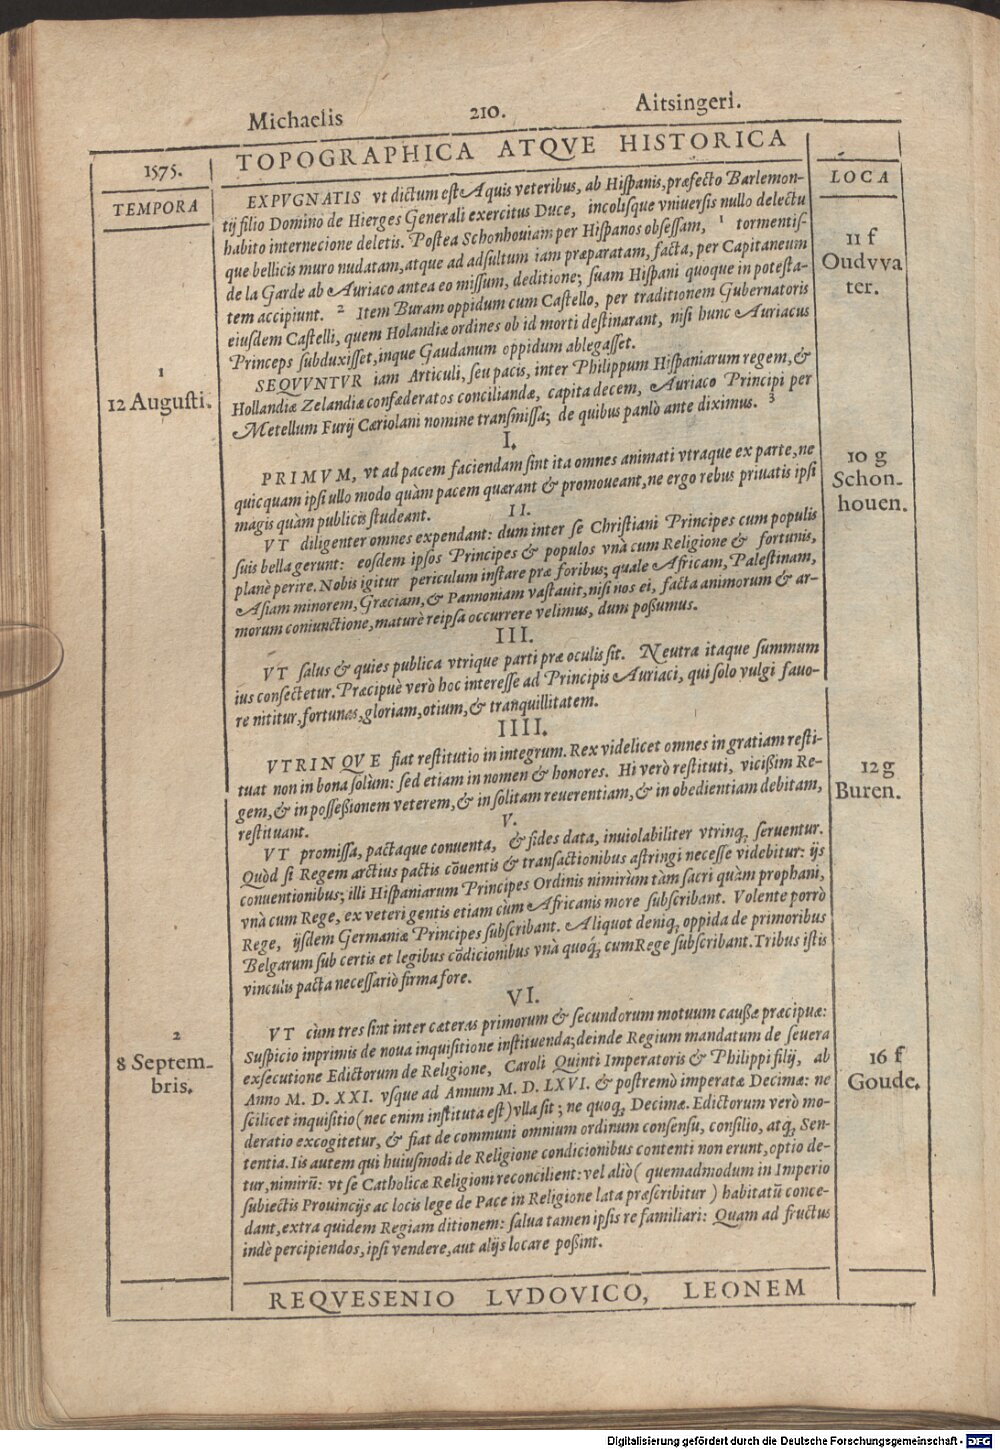 Michaelis 210. Aitsingeri.
TOPOGRAPHICA ATQVE HISTORICA
1575.
TEMPORA
LOCA
EXPVGNATIS vt dictum est Aquis veteribus, ab Hispanis, præfecto Barlemon-
tij filio Domino de Hierges Generali exercitus Duce, incolisque vniuersis nullo delectu
habito internecione deletis. Postea Schonhouiam per Hispanos obsessam, 1 tormentis-
que bellicis muro nudatam, atque ad adsultum iam præparatam, facta, per Capitaneum
de la Garde ab Auriaco antea eo missum, deditione; suam Hispani quoque in potesta-
tem accipiunt. 2 Item Buram oppidum cum Castello, per traditionem Gubernatoris
eiusdem Castelli, quem Holandiæ ordines ob id morti destinarant, nisi hunc Auriacus
Princeps subduxisset, inque Gaudanum oppidum ablegasset.
SEQVVNTVR iam Articuli, seu pacis, inter Philippum Hispaniarum regem, &
Hollandiæ Zelandiæ confæderatos conciliandæ, capita decem, Auriaco Principi per
Metellum Furij Cæriolani nomine transmissa; de quibus panlò ante diximus. 3
I.
PRIMVM, vt ad pacem faciendam sint ita omnes animati vtraque ex parte, ne
quicquam ipsi ullo modo quàm pacem quærant & promoueant, ne ergo rebus priuatis ipsi
magis quàm publicis studeant.
II.
VT diligenter omnes expendant: dum inter se Christiani Principes cum populis
suis bella gerunt: eosdem ipsos Principes & populos vnà cum Religione & fortunis,
planè perire. Nobis igitur periculum instare præ foribus; quale Africam, Palestinam,
Asiam minorem, Græciam, & Pannoniam vastauit, nisi nos ei, facta animorum & ar-
morum coniunctione, maturè reipsa occurrere velimus, dum possumus.
III.
VT salus & quies publica vtrique parti præ oculis sit. Neutra itaque summum
ius consectetur. Præcipuè verò hoc interesse ad Principis Auriaci, qui solo vulgi fauo-
re nititur, fortunas, gloriam, otium, & tranquillitatem.
IIII.
VTRINQVE fiat restitutio in integrum. Rex videlicet omnes in gratiam resti-
tuat non in bona solùm: sed etiam in nomen & honores. Hi verò restituti, vicißim Re-
gem, & in possessionem veterem, & in solitam reuerentiam, & in obedientiam debitam,
restituant.
V.
VT promissa, pactaque conuenta, & fides data, inuiolabiliter vtrinq; seruentur.
Quòd si Regem arctius pactis cōuentis & transactionibus astringi necesse videbitur: ijs
conuentionibus; illi Hispaniarum Principes Ordinis nimirùm tàm sacri quàm prophani,
vnà cum Rege, ex veteri gentis etiam cùm Africanis more subscribant. Volente porrò
Rege, ijsdem Germaniæ Principes subscribant. Aliquot deniq; oppida de primoribus
Belgarum sub certis et legibus cōdicionibus vnà quoq; cum Rege subscribant. Tribus istis
vinculis pacta necessariò firma fore.
VI.
VT cùm tres sint inter cæteras primorum & secundorum motuum caußæ præcipuæ:
Suspicio inprimis de noua inquisitione instituenda; deinde Regium mandatum de seuera
exsecutione Edictorum de Religione, Caroli Quinti Imperatoris & Philippi filij, ab
Anno M. D. XXI. vsque ad Annum M. D. LXVI. & postremò imperatæ Decimæ: ne
scilicet inquisitio (nec enim instituta est) vlla sit; ne quoq; Decimæ. Edictorum verò mo-
deratio excogitetur, & fiat de communi omnium ordinum consensu, consilio, atq; Sen-
tentia. Iis autem qui huiusmodi de Religione condicionibus contenti non erunt, optio de-
tur, nimirū: vt se Catholicæ Religioni reconcilient: vel aliò ( quemadmodum in Imperio
subiectis Prouincijs ac locis lege de Pace in Religione lata præscribitur ) habitatū conce-
dant, extra quidem Regiam ditionem: salua tamen ipsis re familiari: Quam ad fructus
indè percipiendos, ipsi vendere, aut alijs locare poßint.
REQVESENIO LVDOVICO, LEONEM
1
12 Augusti.
2
8 Septem-
bris.
11 f
Oudvva
ter.
10 g
Schon-
houen.
12 g
Buren.
16 f
Goude.
Digitalisierung gefördert durch die Deutsche Forschungsgemeinschaft - DFG